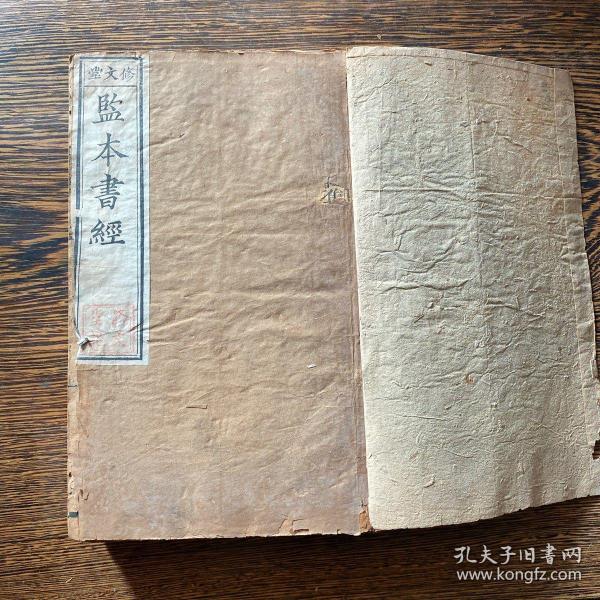 修文堂
監本書經
孔夫子旧書网
www.kongfz.com